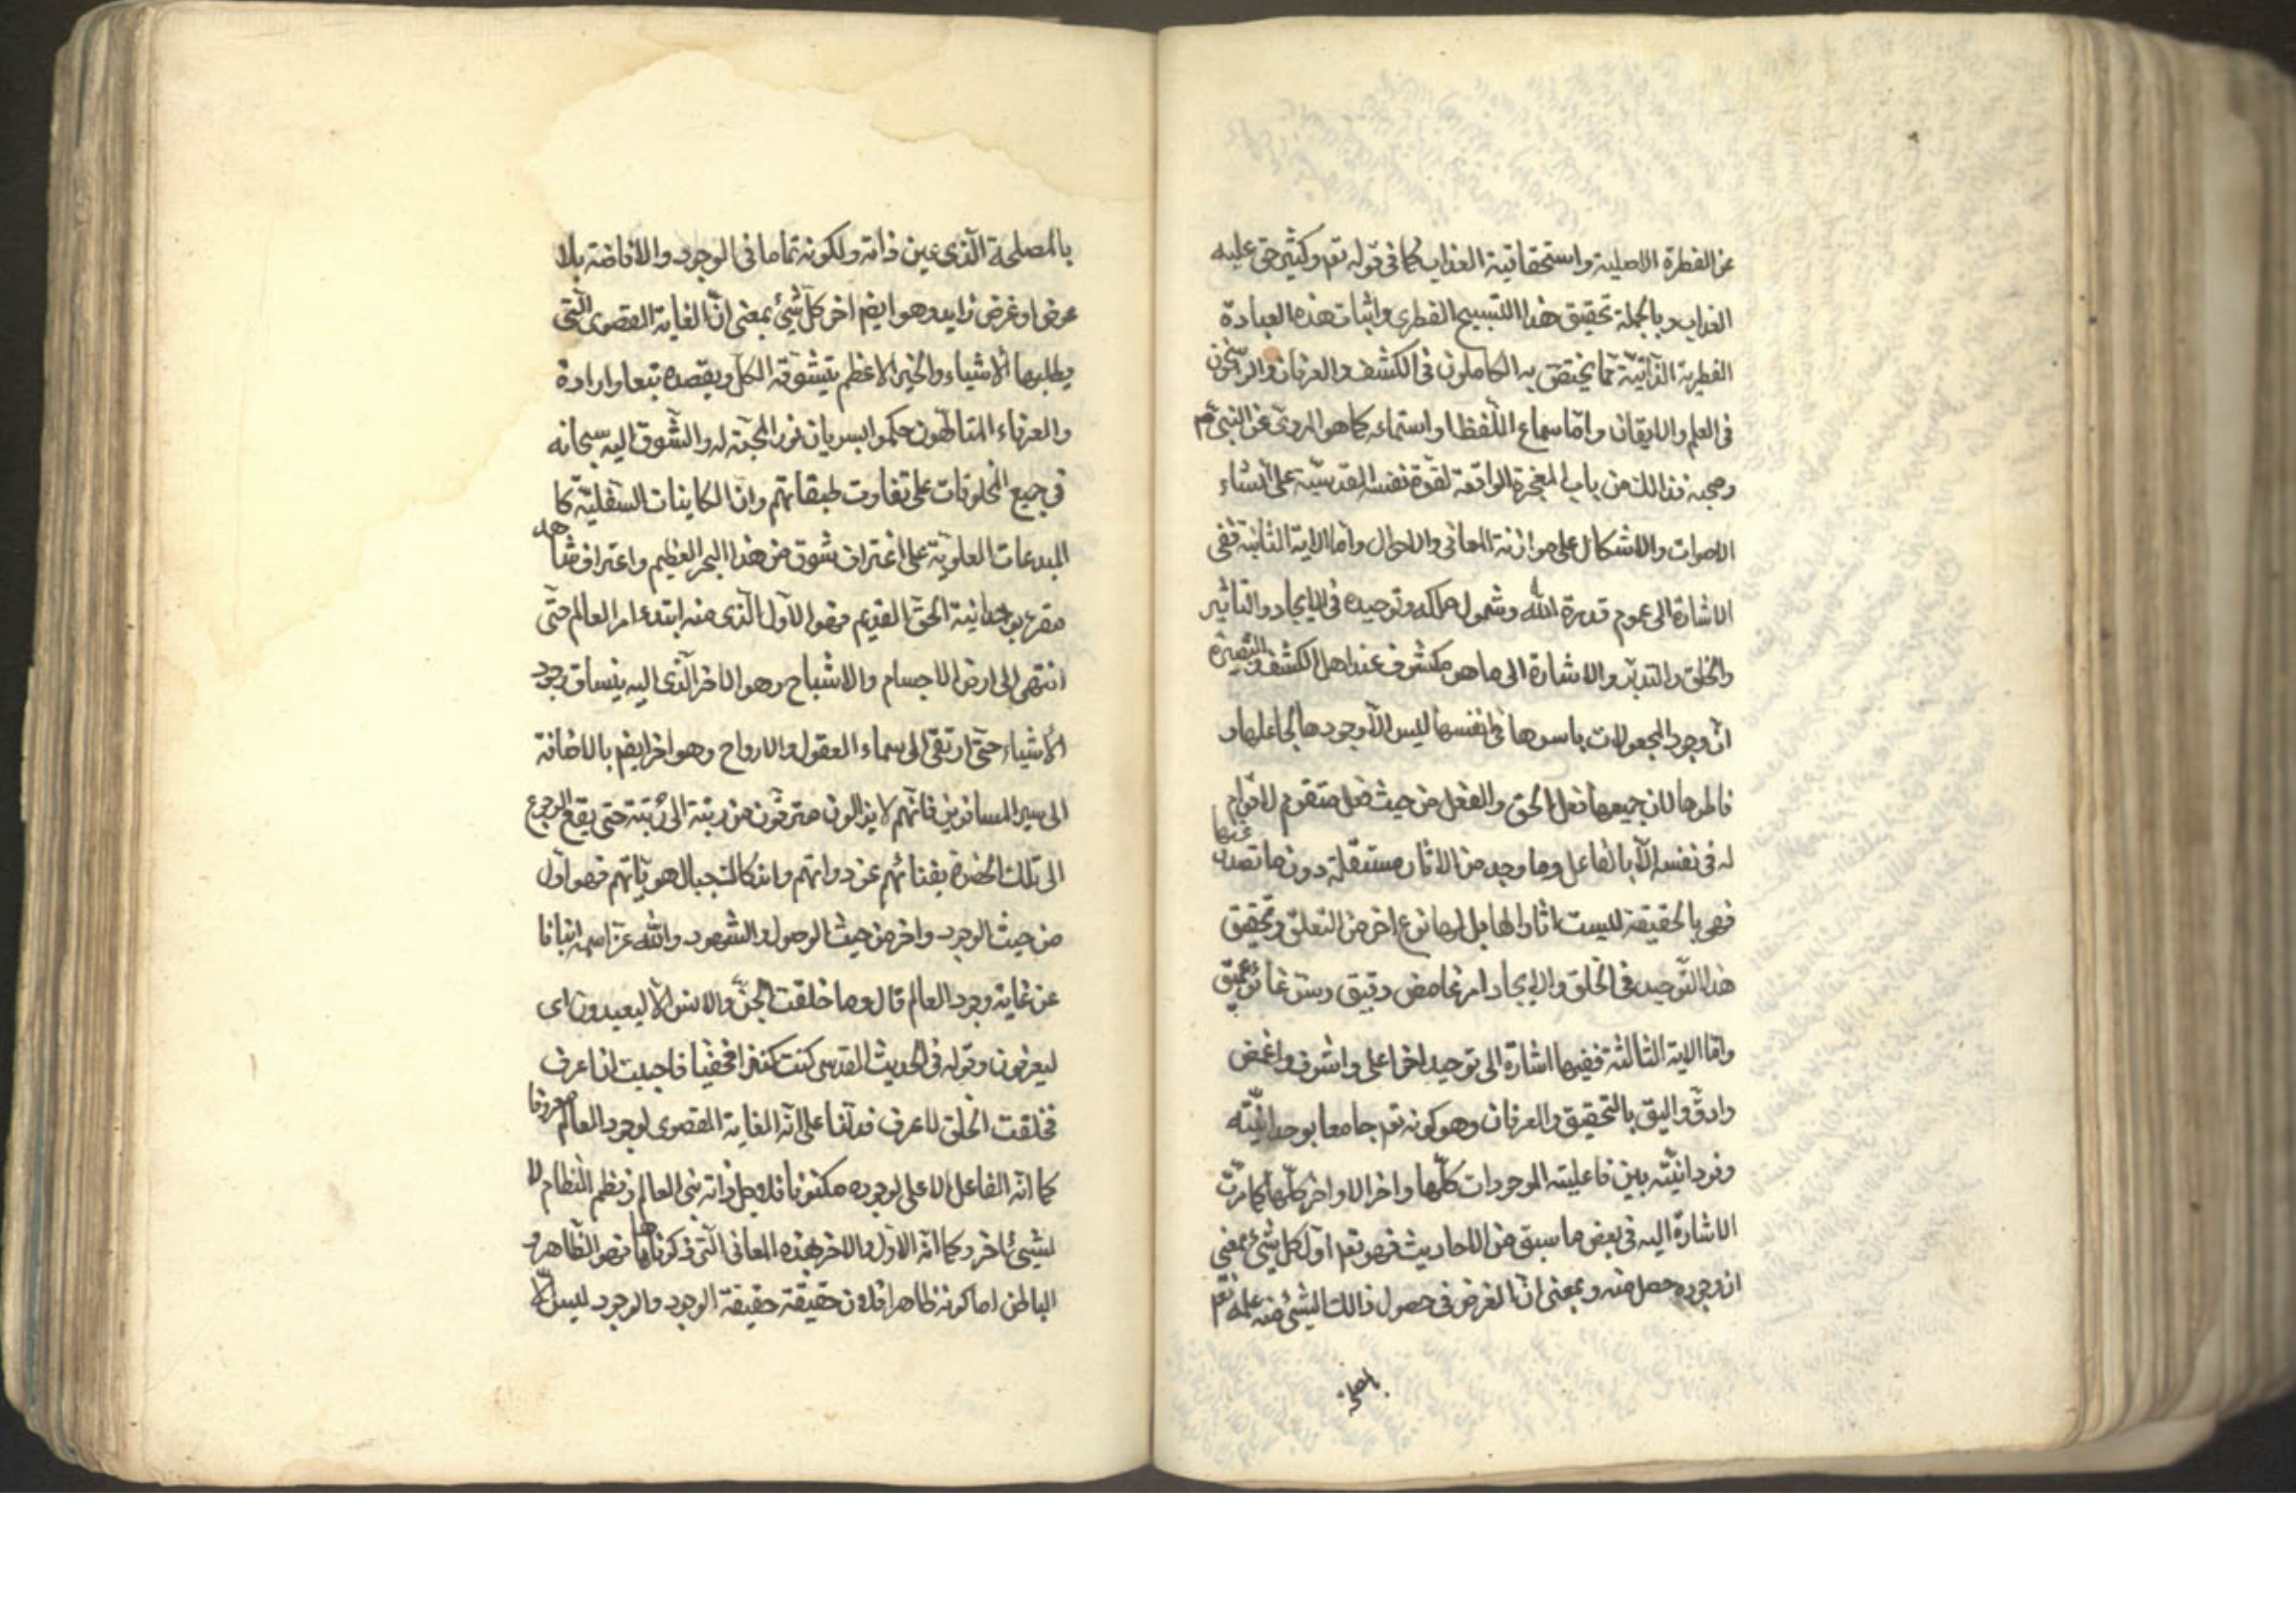 عن الفطرة الاصلية واستحقاقية العذاب كما فى قوله تعم وكثير حق عليه
العذاب وبالجملة تحقيق هذا التسبيح الفطرى واثبات هذه العبادة
الفطرية الذاتية مما يختص به الكاملون فى الكشف والعرفان والراسخون
فى العلم والايقان واما سماع اللفظ او استماعه كما هو المروى عن النبى صم
وصحبه فذالك من باب المعجزة الواقعة لقوة نفسه القدسية على انشاء
الاصوات والاشكال على موازنة المعانى والاحوال واما الاية الثانية ففى
الاشارة الى عموم قدرة الله وشمول ملكه وتوحيده فى الايجاد والتاثير
والخلق والتدبير والاشارة الى ما هو مكشوف عند اهل الكشف والبصيرة
ان وجود المجعولات باسرها فى انفسها ليس الا وجودها لجاعلها و
فاطرها لان جميعها فعل الحق والفعل من حيث فعل متقوم لا قوام
له فى نفسه الا بالفاعل وما وجد من الاثار مستقلة دون ما تصدر عنها
فهى بالحقيقة ليست اثارا لها بل لها نوع اخر من التعلق وتحقيق
هذا التوحيد فى الخلق والايجاد امر غامض دقيق وستر غائر عميق
واما الاية الثالثة ففيها اشارة الى توحيد اخر اعلى واشرف واغمض
وادق واليق بالتحقيق والعرفان وهو كونه تعم جامعا بوحدانيته
وفردانيته بين فاعليته الموجودات كلها واخر الاواخر كلها كما مرت
الاشارة اليه فى بعض ما سبق من الاحاديث فهو تعم اول كل شىء بمعنى
ان وجوده حصل منه وبمعنى ان الغرض فى حصول ذالك الشىء منه علمه تعم
بالمصلحة الذى عين ذاته ولكونه تماما فى الوجود والافاضة بلا
عوض او غرض زايد وهو ايضم اخر كل شىء بمعنى ان الغاية القصوى التى
يطلبها الاشياء والخير الاعظم يتشوقه الكل ويقصده تبعا وارادة
والعرفاء المتالهون حكموا بسريان نور المحبة له والشوق اليه سبحانه
فى جميع المخلوقات على تفاوت طبقاتهم وان الكاينات السفلية كا
لمبدعات العلوية على اغتراف شوق من هذا البحر العظيم واعتراف شاهد
مقر بوحدانية الحق القديم فهو الاول الذى منه ابتدء امر العالم حتى
انتهى الى ارض الاجسام والاشباح وهو الاخر الذى اليه ينساق وجود
الاشياء حتى ارتقى الى سماء العقول والارواح وهو اخر ايضم بالاضافة
الى سير المسافرين فانهم لا يزالون مترقون من رتبة الى رتبة حتى يقع الرجوع
الى تلك الحضرة بفنائهم عن ذواتهم واندكاك جبال هوياتهم فهو اول
من حيث الوجود واخر من حيث الوصول والشهود والله عز اسمه انبانا
عن غاية وجود العالم قال وما خلقت الجن والانس الا ليعبدون اى
ليعرفون وقوله فى الحديث القدسى كنت كنزا مخفيا فاحببت ان اعرف
فخلقت الخلق لاعرف فدلنا على انه الغاية القصوى لوجود العالم معروفا
كما انه الفاعل الاعلى لوجوده مكنونا فلاجل ذاته بنى العالم ونظم النظام لا
لشىء اخر وكما انه الاول والاخر بهذه المعانى التى ذكرناها فهو الظاهر و
الباطن اما كونه ظاهرا فلان حقيقته حقيقة الوجود والوجود ليس الا